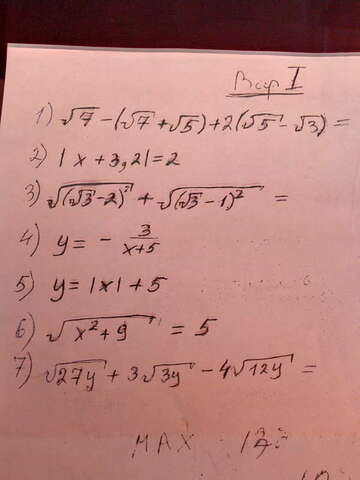 Вар I
1) √7 - (√7 + √5) + 2(√5 - √3) =
2) |x + 3,2| = 2
3) √(√3 - 2)² + √(√3 - 1)² =
4) y = - 3/(x+5)
5) y = |x| + 5
6) √x² + 9 = 5
7) √27y + 3√3y - 4√12y =
MAX